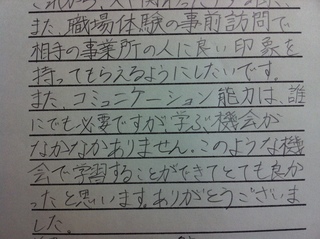 これから、人と関わったりする際、
また、職場体験の事前訪問で
相手の事業所の人に良い印象を
持ってもらえるようにしたいです。
また、コミュニケーション能力は、誰
にでも必要ですが、学ぶ機会が
なかなかありません。このような機
会で学習することができてとても良か
ったと思います。ありがとうございま
した。